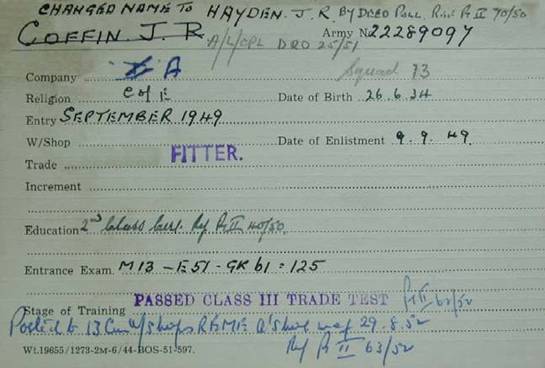 CHANGED NAME TO HAYDEN. J. R. By DEED POLL. Pt II 70/50
COFFIN J. R. Army No 22289097
A/L/CPL DRO 25/51
Company A Squad 13
Religion C of E Date of Birth 26.6.34
Entry SEPTEMBER 1949
W/Shop Date of Enlistment 9.9.49.
Trade FITTER.
Increment
Education 2nd Class Cert. Ref Pt II 40/50.
Entrance Exam. M13 - E51 - GK 61 = 125
Stage of Training PASSED CLASS III TRADE TEST Pt II 63/52
Posted to 13 Comd W/shops REME wef 29.8.52
Ref Pt II 63/52
Wt.19655/1273-2M-6/44-BOS-51-597.